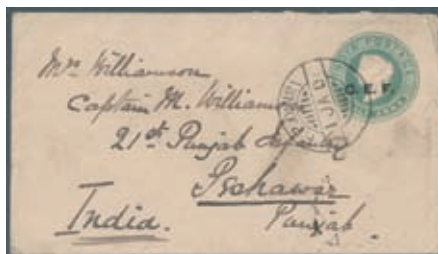 Mrs Williamson
Captain M. Williamson
21st Punjab Infantry
Peshawar
Punjab
India.
C.E.F.